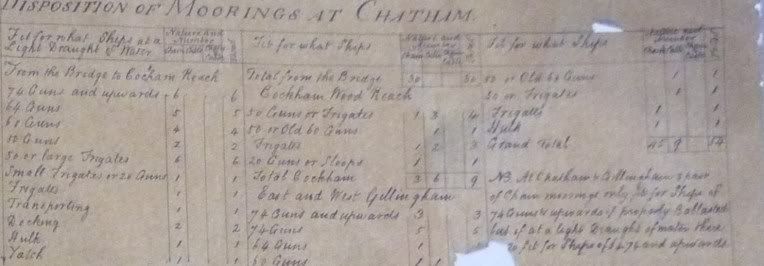 DISPOSITION OF MOORINGS AT CHATHAM.
Fit for what Ships at a
Light Draught of Water
Nature and
Number
Chain Cable
From the Bridge to Cocham Reach
74 Guns and upwards 6 6
64 Guns 5 5
60 Guns 4 4
50 Guns 2 2
50 or large Frigates 6 6
Small Frigates or 20 Guns 1 1
Frigates 1 1
Transporting 1 1
Docking 2 2
Hulk 1 1
Yatch 1 1
Fit for what Ships
Nature and
Number
Chain Cable
Total from the Bridge 30 30
Cockham Wood Reach
50 Guns or Frigates 1 3 4
50 or Old 60 Guns 1 1
Frigates 1 2 3
20 Guns or Sloops 1 1
Total Cockham 3 6 9
East and West Gillingham
74 Guns and upwards 3 3
74 Guns 5 5
64 Guns 1 1
60 Guns 1 1
Fit for what Ships
Nature and
Number
Chain Cable
50 or Old 60 Guns 1 1
50 or Frigates 1 1
Frigates 1 1
Hulk 1 1
Grand Total 45 9 54
NB. At Chatham & Gillingham a pair
of Chain moorings only, fit for Ships of
74 Guns & upwards if properly Ballasted
but if at a light Draught of water there
to fit for Ships of 74 and upwards